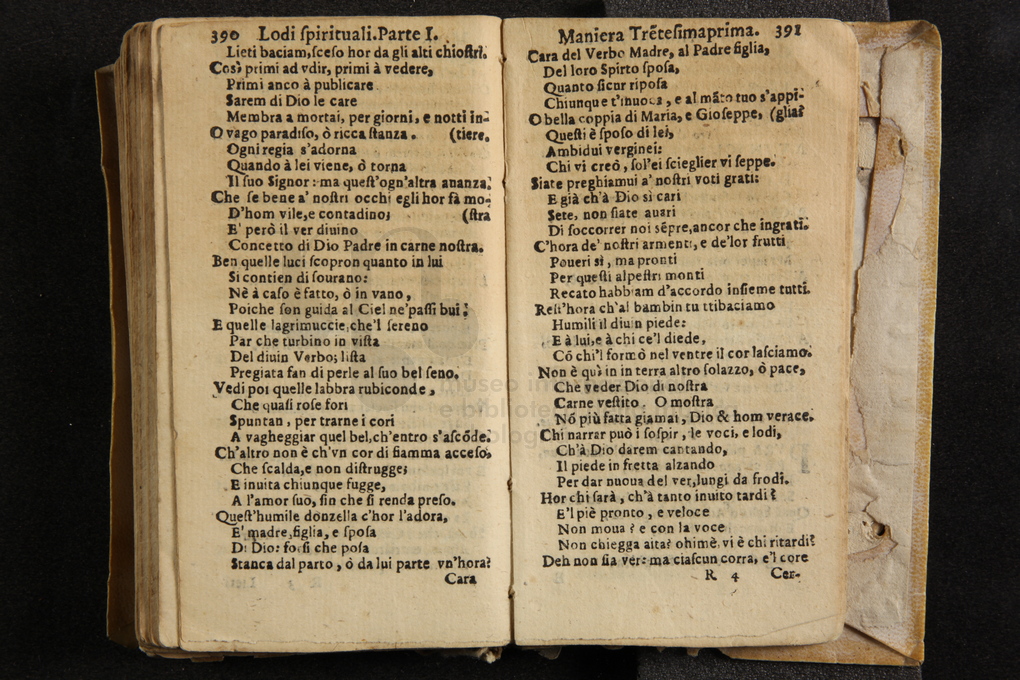 390 Lodi ſpirituali.Parte I.
Lieti baciam,ſceſo hor da gli alti chioſtri.
Così primi ad vdir, primi à vedere,
Primi anco à publicare
Sarem di Dio le care
Membra a mortai, per giorni, e notti in-
O vago paradiſo, ò ricca ſtanza . (tiere,
Ogni regia s'adorna
Quando à lei viene, ò torna
Il ſuo Signor : ma queſt'ogn'altra auanza.
Che ſe bene a' noſtri occhi egli hor fà mo-
D'hom vile,e contadino; (ſtra
E' però il ver diuino
Concetto di Dio Padre in carne noſtra.
Ben quelle luci ſcopron quanto in lui
Si contien di ſourano:
Nè à caſo è fatto, ò in vano ,
Poiche ſon guida al Ciel ne'paſſi bui.
E quelle lagrimuccie,che'l ſereno
Par che turbino in viſta
Del diuin Verbo; liſta
Pregiata fan di perle al ſuo bel ſeno.
Vedi poi quelle labbra rubiconde ,
Che quaſi roſe fori
Spuntan , per trarne i cori
A vagheggiar quel bel,ch'entro s'aſcõde.
Ch'altro non è ch'vn cor di fiamma acceſo,
Che ſcalda,e non diſtrugge;
E inuita chiunque fugge,
A l'amor ſuo, fin che ſi renda preſo.
Queſt'humile donzella c'hor l'adora,
E' madre,figlia, e ſpoſa
Di Dio: forſi che poſa
Stanca dal parto , ò da lui parte vn'hora?
Cara
Maniera Trẽteſimaprima. 391
Cara del Verbo Madre, al Padre figlia,
Del loro Spirto ſpoſa,
Quanto ſicur ripoſa
Chiunque t'inuoca , e al mãto tuo s'appi-
O bella coppia di Maria, e Gioſeppe, (glia?
Queſti è ſpoſo di lei,
Ambidui verginei:
Chi vi creò , ſol'ei ſcieglier vi ſeppe.
Siate preghiamui a' noſtri voti grati:
E già ch'à Dio sì cari
Sete, non ſiate auari
Di ſoccorrer noi sẽpre,ancor che ingrati.
C'hora de' noſtri armenti, e de'lor frutti
Poueri sì , ma pronti
Per queſti alpeſtri monti
Recato habbiam d'accordo inſieme tutti.
Reſt'hora ch'al bambin tu ttibaciamo
Humili il diuin piede:
E à lui,e à chi ce'l diede,
Cõ chi'l formò nel ventre il cor laſciamo.
Non è quì in in terra altro ſolazzo, ò pace,
Che veder Dio di noſtra
Carne veſtito . O moſtra
Nõ più fatta giamai , Dio & hom verace.
Chi narrar può i ſoſpir , le voci, e lodi,
Ch'à Dio darem cantando,
Il piede in fretta alzando
Per dar nuoua del ver,lungi da frodi.
Hor chi ſarà , ch'à tanto inuito tardi ?
E'l piè pronto , e veloce
Non moua ? e con la voce
Non chiegga aita? ohimè vi è chi ritardi?
Deh non ſia ver: ma ciaſcun corra, e'l core
R 4 Cer-